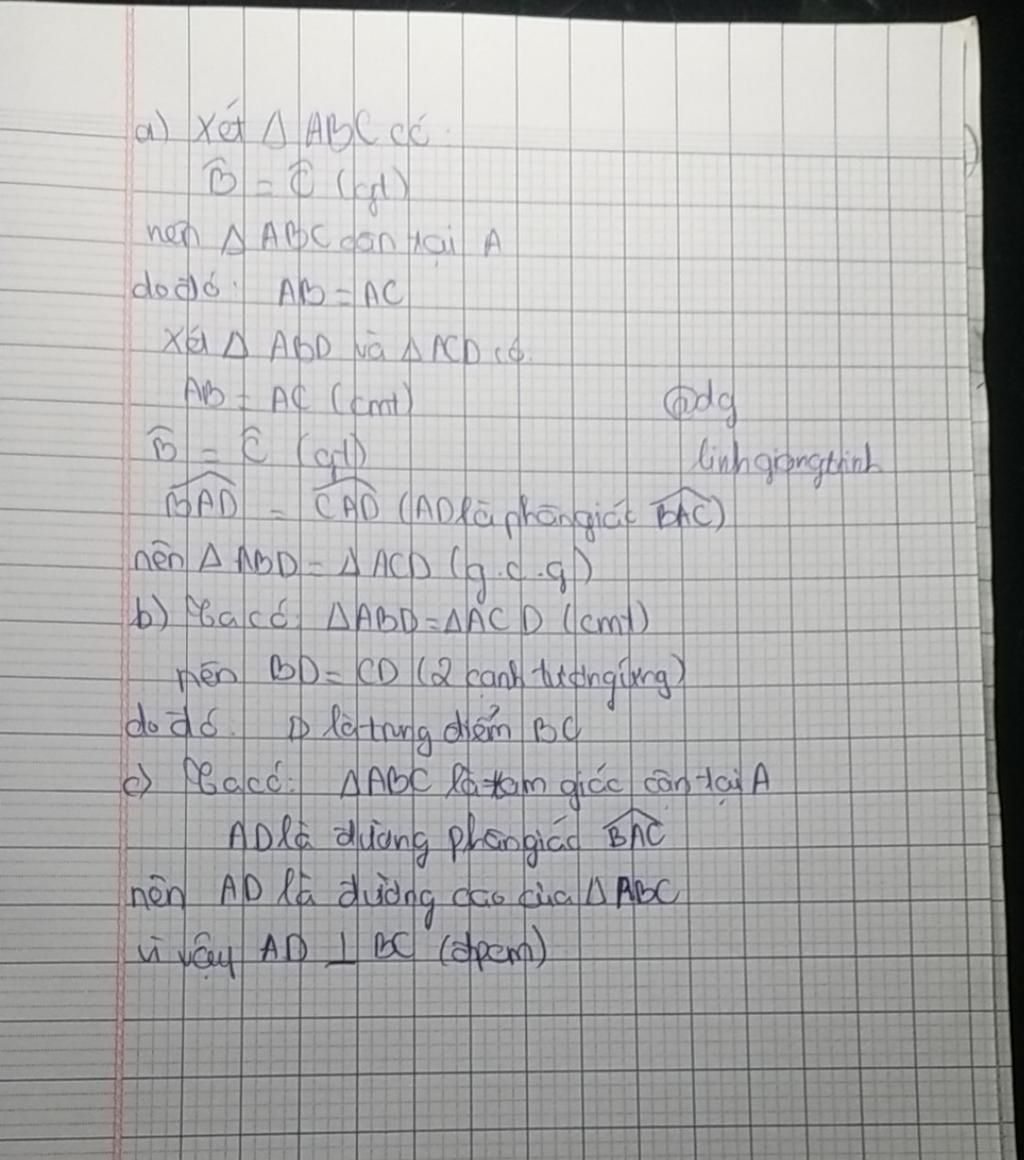 a) Xét Δ ABC có:
B̂ = Ĉ (gt)
nên Δ ABC cân tại A
do đó: AB = AC
Xét Δ ABD và Δ ACD có:
AB = AC (cmt)
@dg
B̂ = Ĉ (gt)
linhgiangtrinh
B͡AD = C͡AD (AD là phân giác B͡AC)
nên Δ ABD = Δ ACD (g.c.g)
b) Ta có: ΔABD = ΔACD (cmt)
nên BD = CD (2 cạnh tương ứng)
do đó: D là trung điểm BC
c) Ta có: ΔABC là tam giác cân tại A
AD là đường phân giác B͡AC
nên AD là đường cao của Δ ABC
vì vậy AD ⊥ BC (đpcm)